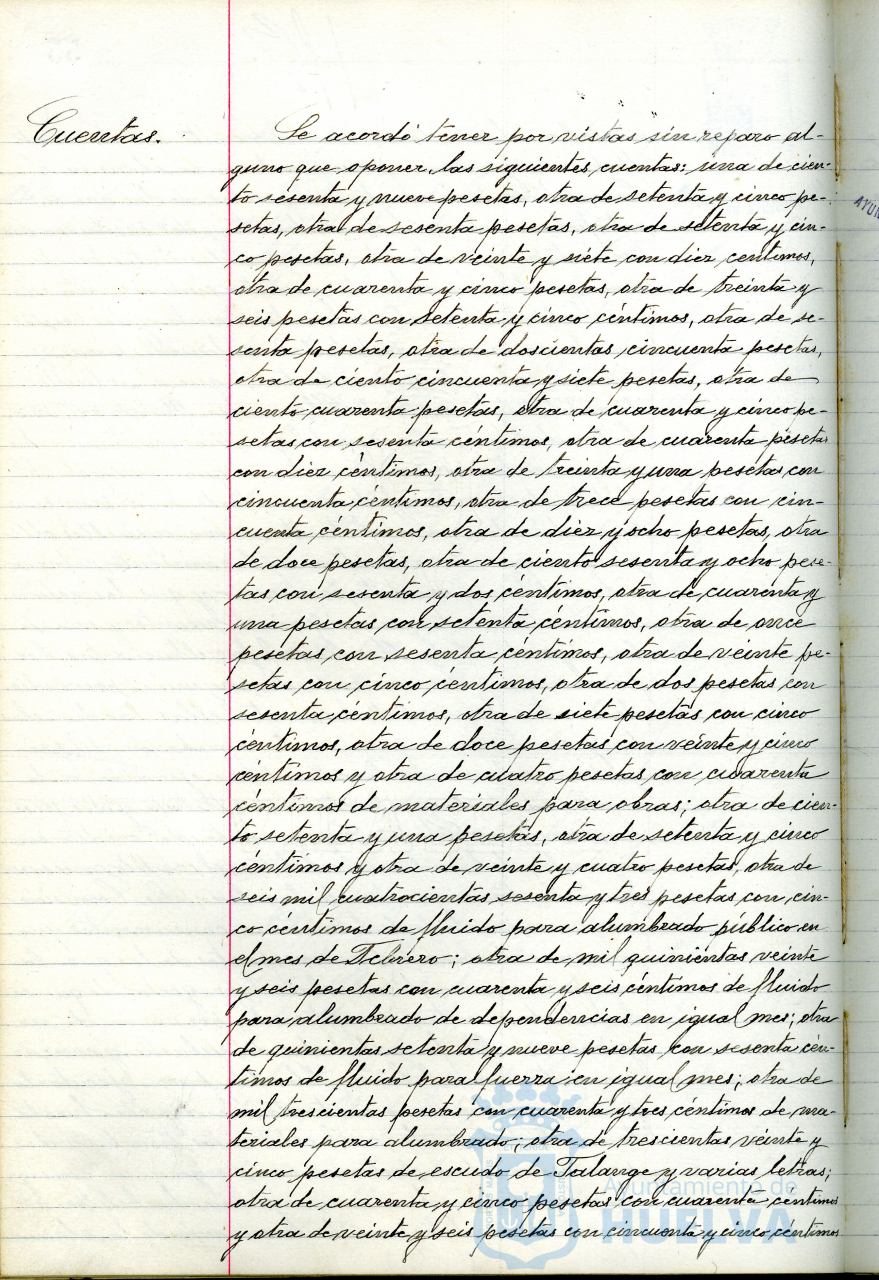 Cuentas.
Se acordó tener por vistas sin reparo al-
guno que oponer, las siguientes cuentas: una de cien-
to sesenta y nueve pesetas, otra de setenta y cinco pe-
setas, otra de sesenta pesetas, otra de setenta y cin-
co pesetas, otra de veinte y siete con diez centimos,
otra de cuarenta y cinco pesetas, otra de treinta y
seis pesetas con setenta y cinco céntimos, otra de se-
senta pesetas, otra de doscientas cincuenta pesetas,
otra de ciento cincuenta y siete pesetas, otra de
ciento cuarenta pesetas, otra de cuarenta y cinco pe-
setas con sesenta céntimos, otra de cuarenta pesetas
con diez céntimos, otra de treinta y una pesetas con
cincuenta céntimos, otra de trece pesetas con cin-
cuenta céntimos, otra de diez y ocho pesetas, otra
de doce pesetas, otra de ciento sesenta y ocho pese-
tas con sesenta y dos céntimos, otra de cuarenta y
una pesetas con setenta céntimos, otra de once
pesetas con sesenta céntimos, otra de veinte pe-
setas con cinco céntimos, otra de dos pesetas con
sesenta céntimos, otra de siete pesetas con cinco
céntimos, otra de doce pesetas con veinte y cinco
céntimos y otra de cuatro pesetas con cuarenta
céntimos de materiales para obras; otra de cien-
to setenta y una pesetas, otra de setenta y cinco
céntimos y otra de veinte y cuatro pesetas, otra de
seis mil cuatrocientas sesenta y tres pesetas con cin-
co céntimos de fluido para alumbrado público en
el mes de Febrero; otra de mil quinientas veinte
y seis pesetas con cuarenta y seis céntimos de fluido
para alumbrado de dependencias en igual mes; otra
de quinientas setenta y nueve pesetas con sesenta cén-
timos de fluido para fuerza en igual mes; otra de
mil trescientas pesetas con cuarenta y tres céntimos de ma-
teriales para alumbrado; otra de trescientas veinte y
cinco pesetas de escudo de Talange y varias letras;
otra de cuarenta y cinco pesetas con cuarenta céntimos
y otra de veinte y seis pesetas con cincuenta y cinco céntimos
Ayuntamiento de
HUELVA